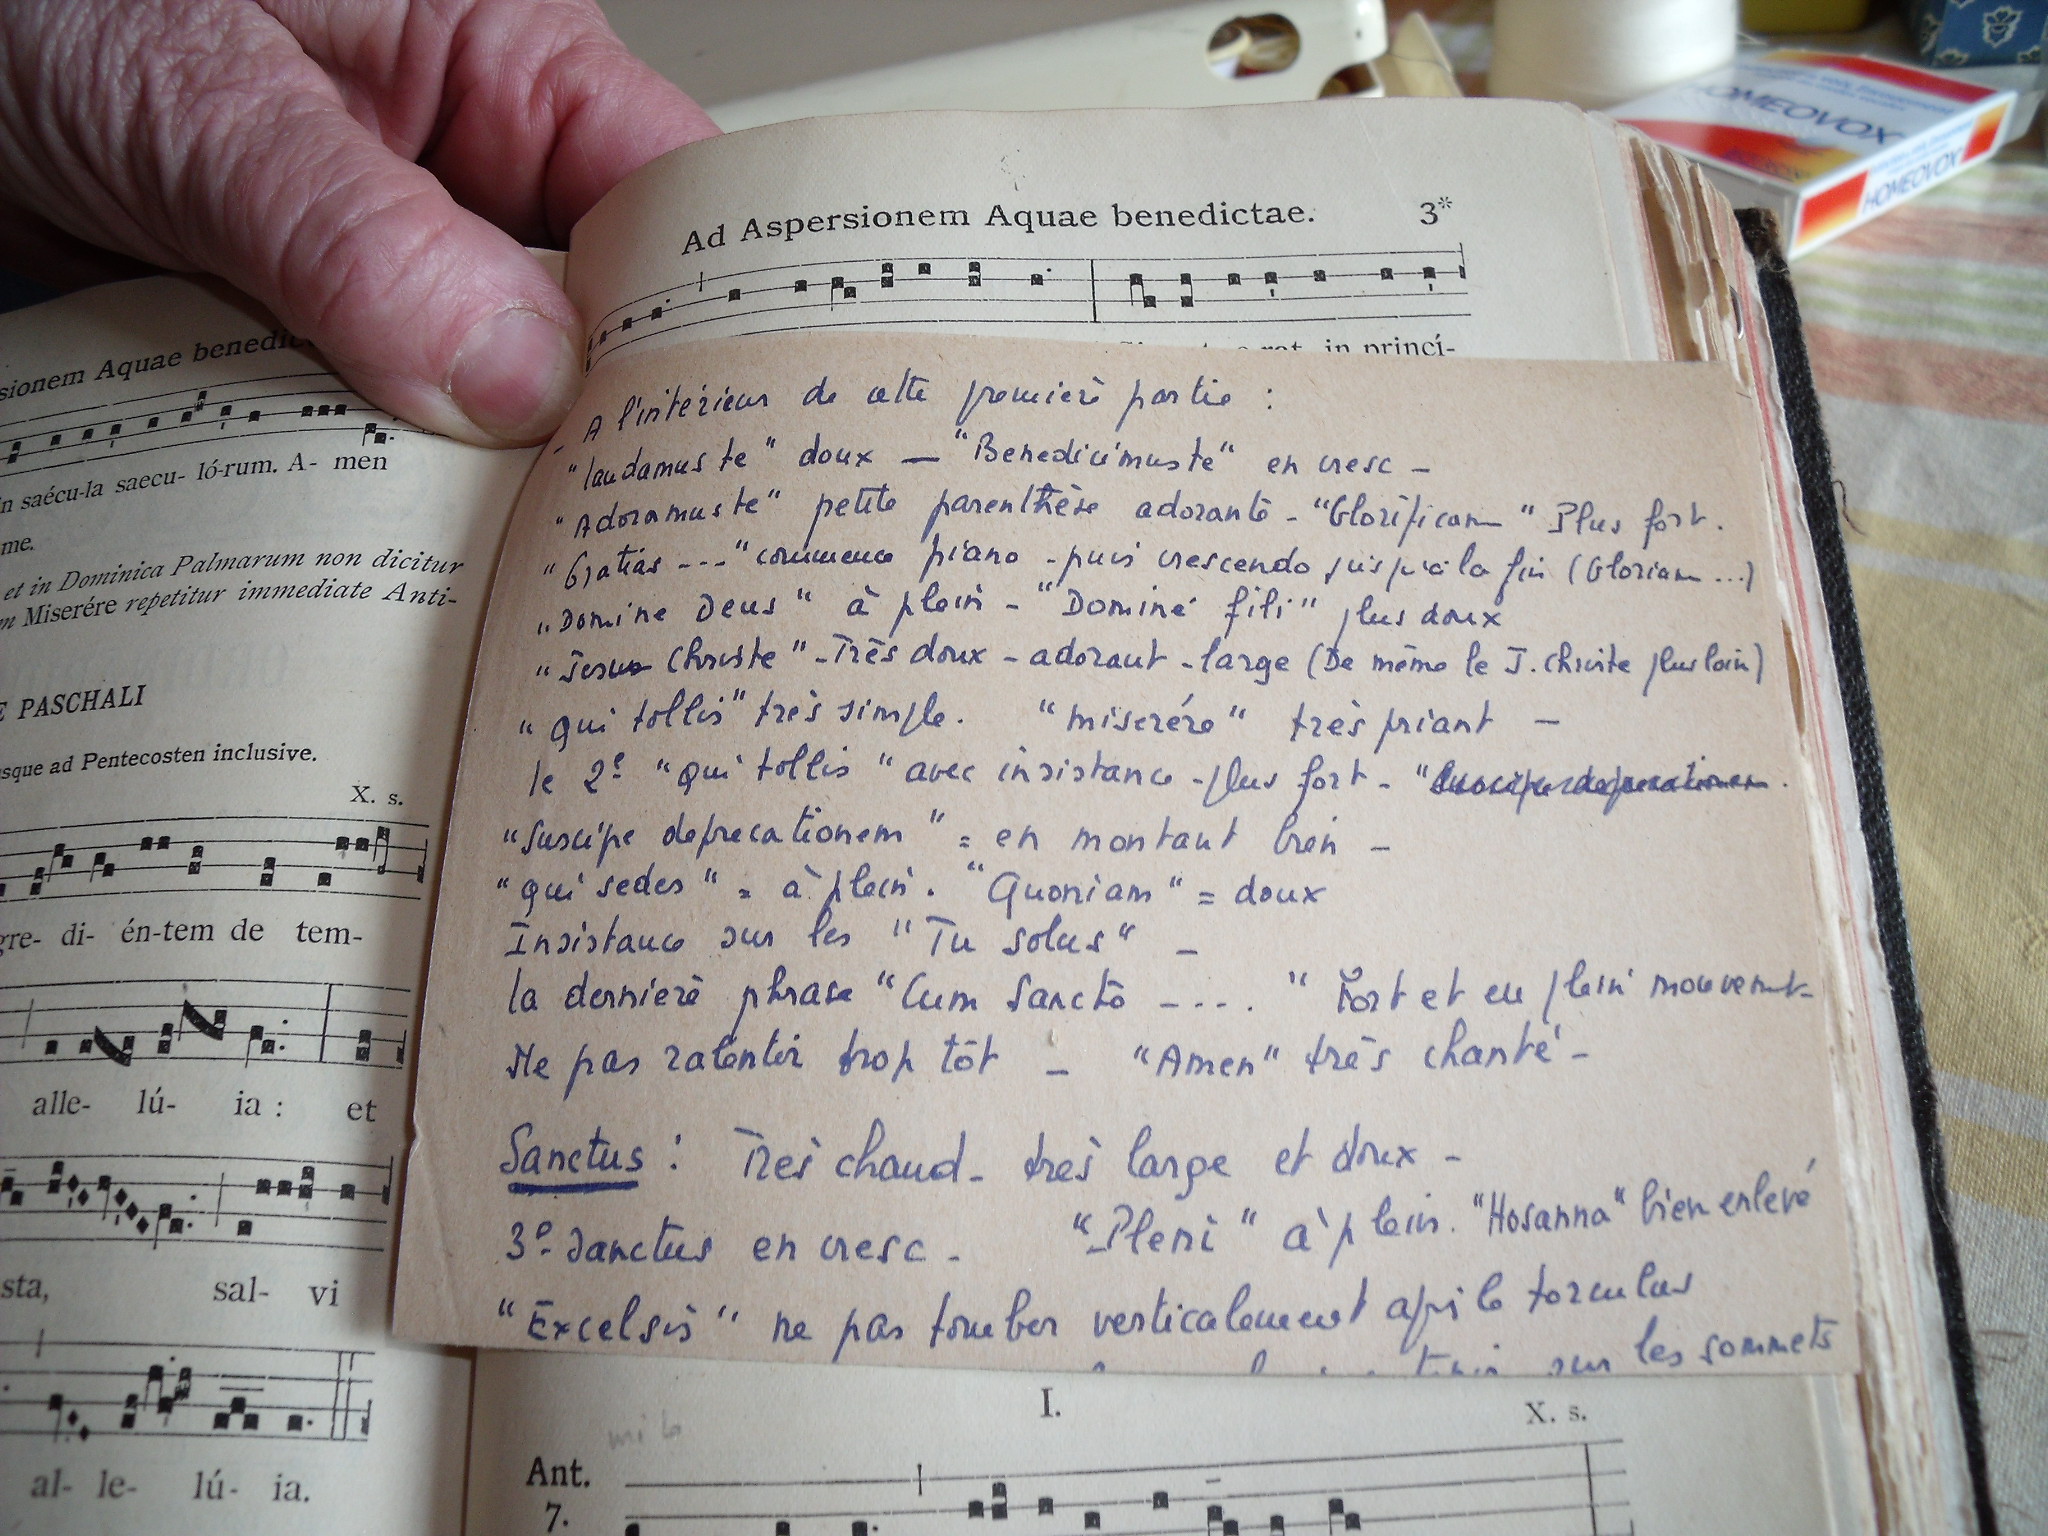 Ad Aspersionem Aquae benedictae. 3*
in princí-
- A l'intérieur de cette première partie :
"laudamus te" doux — "Benedicimuste" en cresc -
"Adoramuste" petite parenthèse adorante - "Glorificam" Plus fort.
"Gratias ---" commence piano - puis crescendo jusqu'à la fin (Gloriam ...)
"Domine Deus" à plein - "Domine fili" plus doux
"Jesus Christe" - Très doux - adorant - large (De même le J. Christe plus loin)
"Qui tollis" très simple. "miserére" très priant -
le 2e "Qui tollis" avec insistance - plus fort - "Suscipe deprecationem.
"Suscipe deprecationem" = en montant bien -
"Qui sedes" = à plein. "Quoniam" = doux
Insistance sur les "Tu solus" -
la dernière phrase "Cum Sancto ----." Fort et en plein mouvemt-
Ne pas ralentir trop tôt - "Amen" très chanté -
Sanctus : Très chaud - très large et doux -
3e Sanctus en cresc - "Pleni" à plein. "Hosanna" bien enlevé
"Excelsis" ne pas tomber verticalement après le torculus
sur les sommets
I. X. s.
mi b
Ant.
7.
sionem Aquae benedic
in saécu-la saecu- ló-rum. A- men
me.
et in Dominica Palmarum non dicitur
m Miserére repetitur immediate Anti-
E PASCHALI
sque ad Pentecosten inclusive.
X. s.
gre- di- én-tem de tem-
alle- lú- ia : et
sta, sal- vi
al- le- lú- ia.
HOMEOVOX
HOMEOVOX